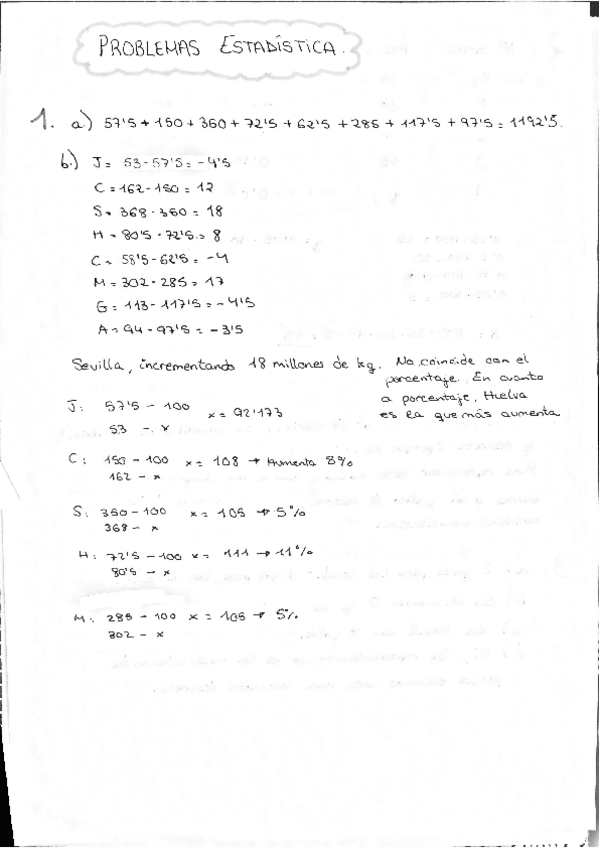 PROBLEMAS ESTADÍSTICA.
1. a.) 57'5 + 150 + 350 + 72'5 + 62'5 + 285 + 117'5 + 97'5 = 1192'5.
b.) J = 53 - 57'5 = -4'5
C = 162 - 150 = 12
S = 368 - 350 = 18
H = 80'5 - 72'5 = 8
C = 58'5 - 62'5 = -4
M = 302 - 285 = 17
G = 113 - 117'5 = -4'5
A = 94 - 97'5 = -3'5
Sevilla, incrementando 18 millones de kg. No coincide con el
porcentaje. En cuanto
a porcentaje, Huelva
es la que más aumenta
J: 57'5 - 100 x = 92'173
53 - x
C: 150 - 100 x = 108 → Aumenta 8%
162 - x
S: 350 - 100 x = 105 → 5%
368 - x
H: 72'5 - 100 x = 111 → 11%
80'5 - x
M: 285 - 100 x = 105 → 5%
302 - x